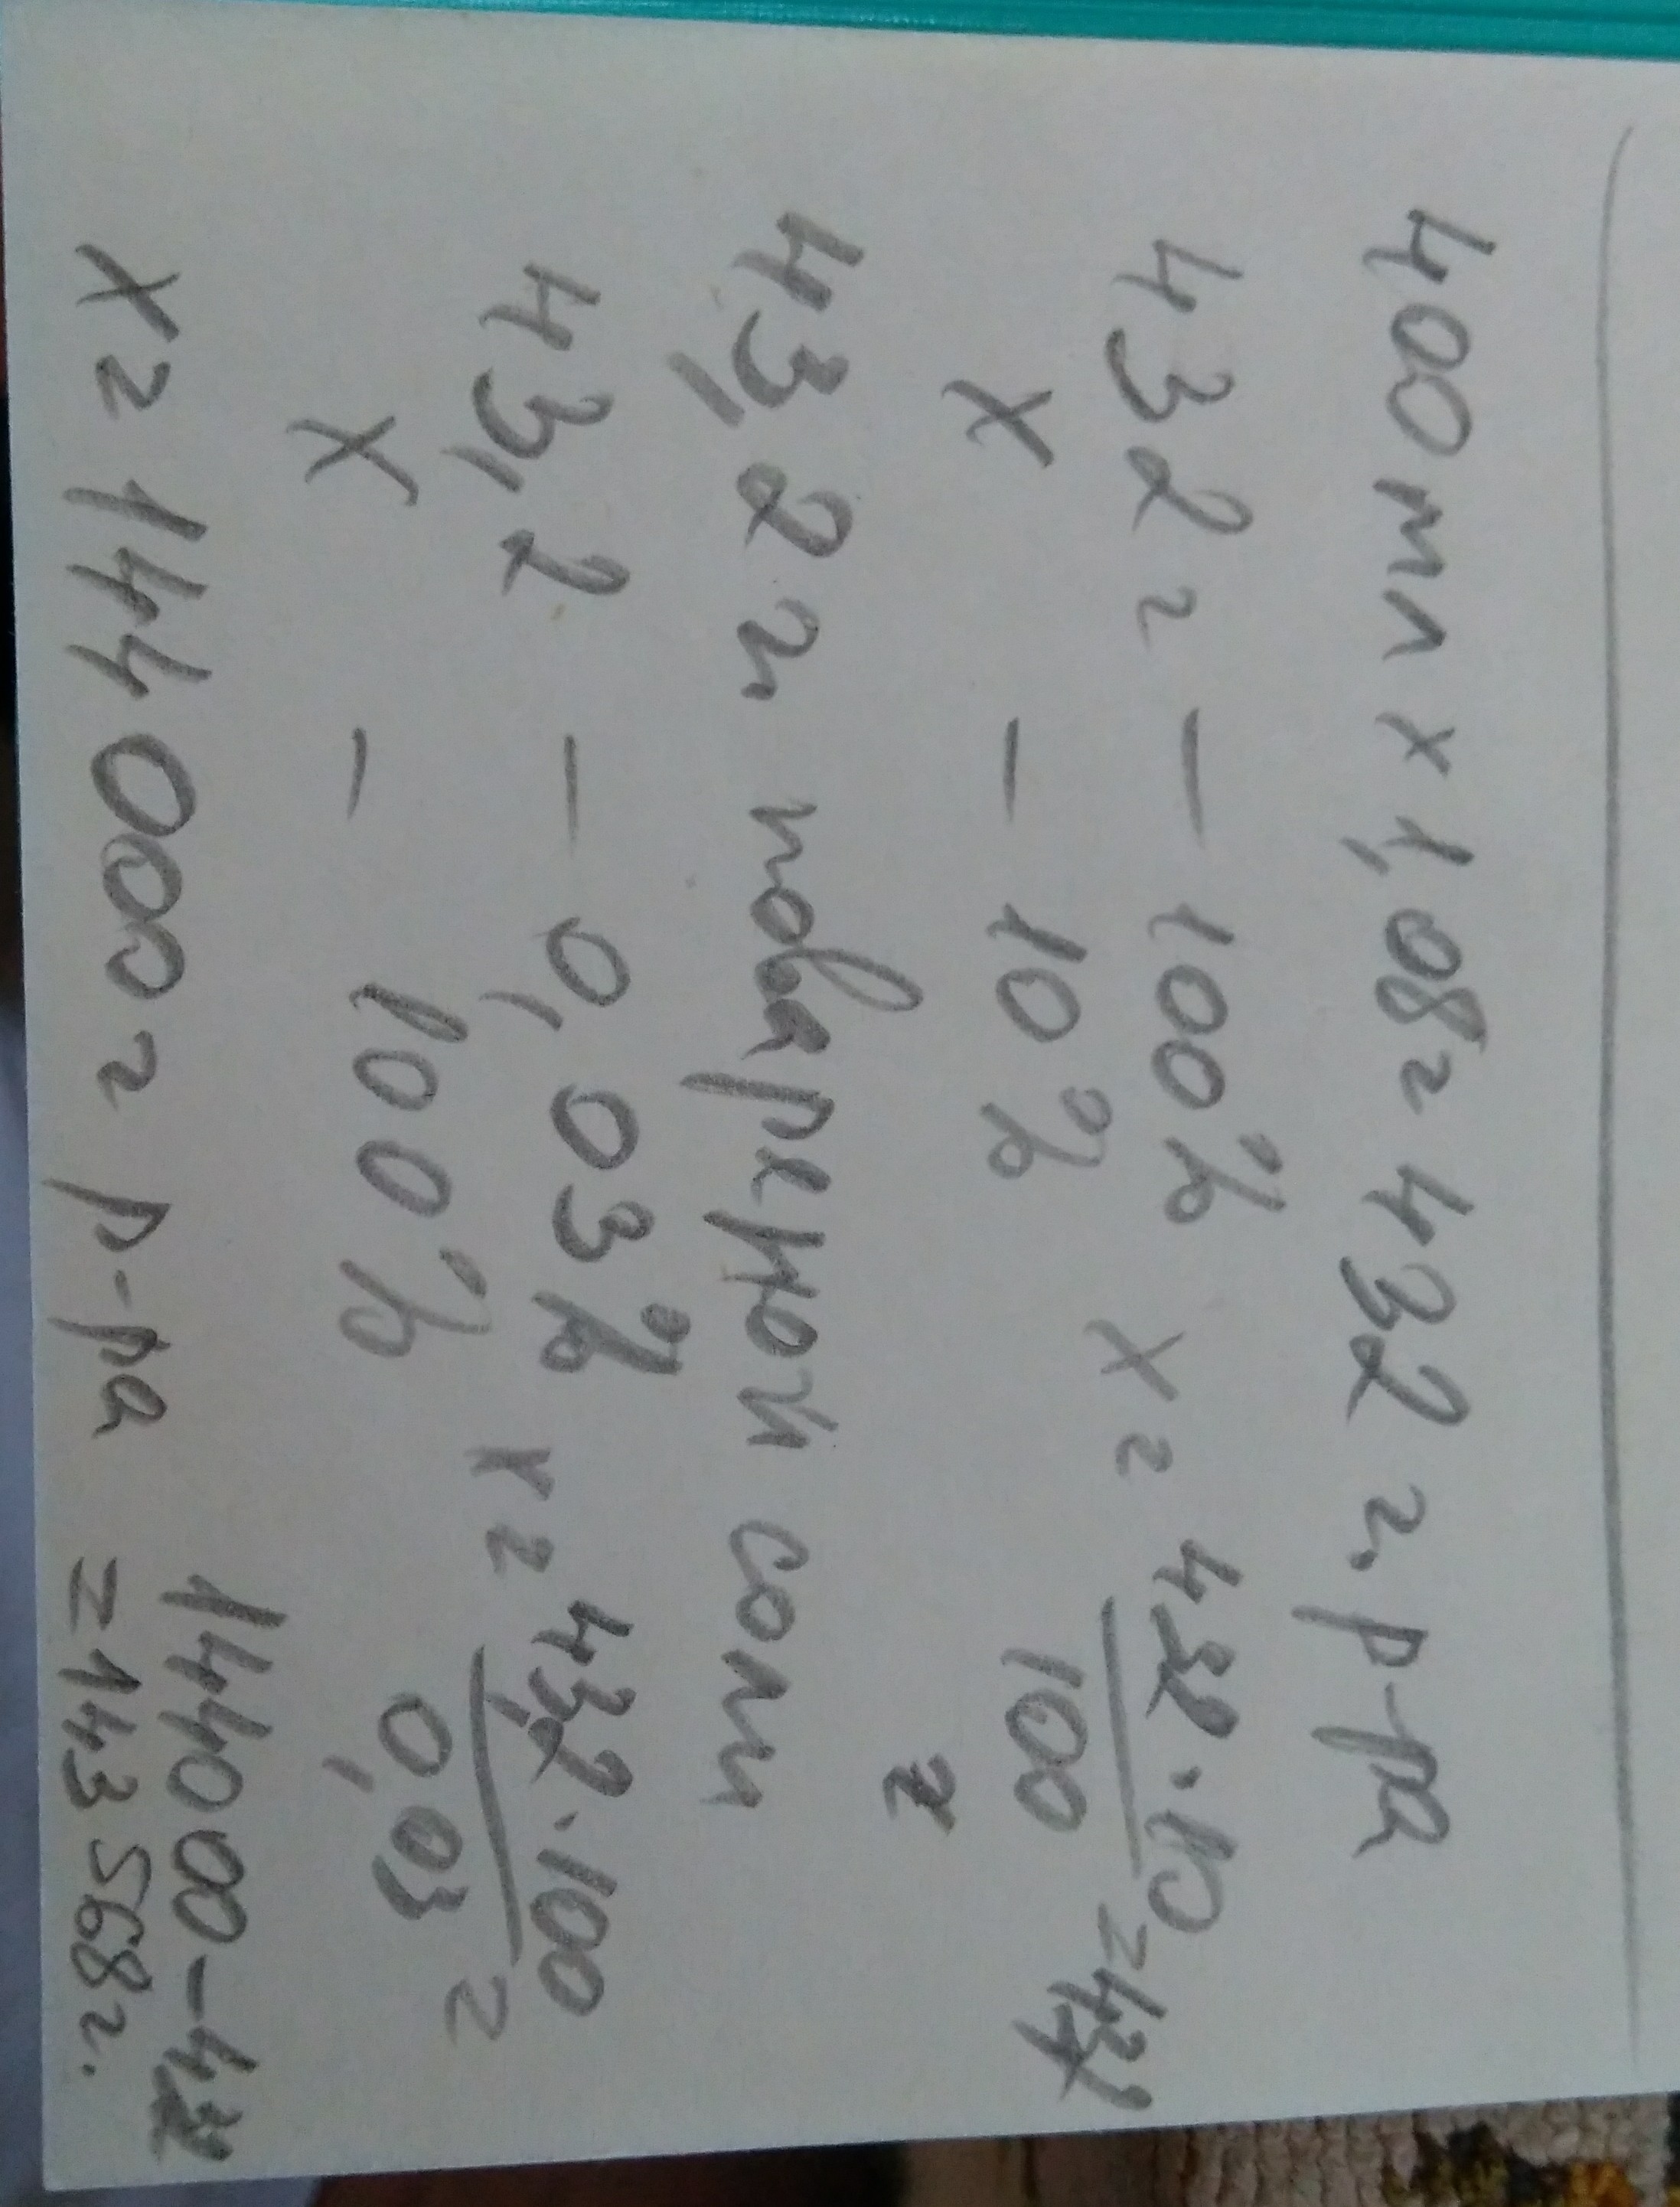 400 мл х 1,08 = 432 г. р-ра
432 г — 100%
х — 10%
х = 432·10/100 = 43,2
43,2 г поваренной соли
43,2 — 0,03%
х — 100%
х = 43,2·100/0,03 =
х = 144000 г р-ра
144000-432
=143568 г.